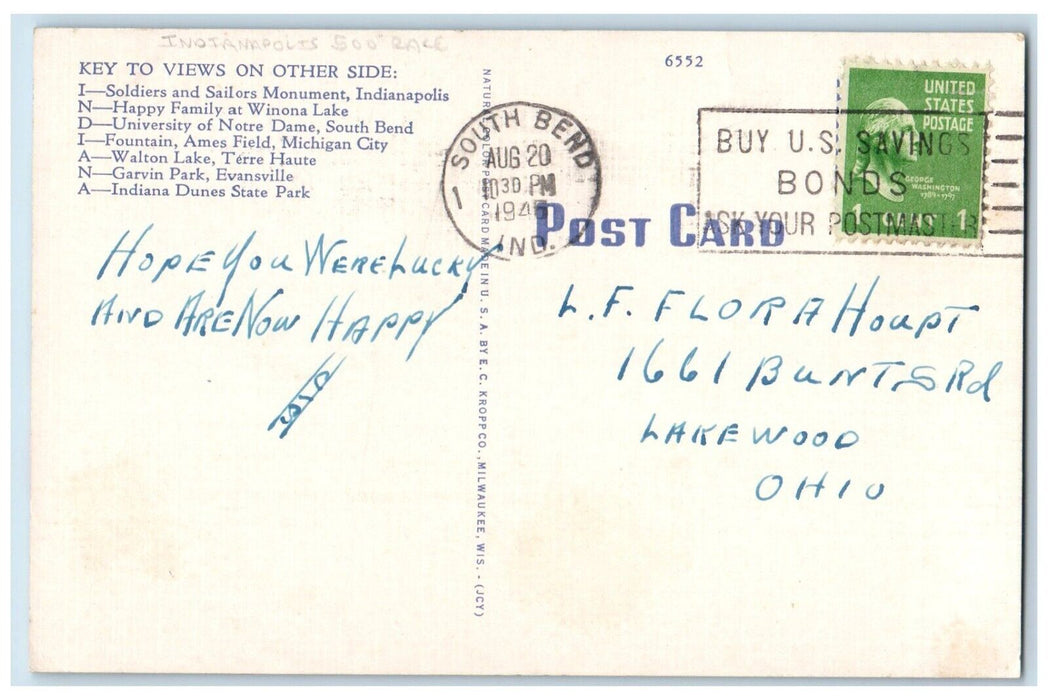 INDIANAPOLIS 500 RACE
KEY TO VIEWS ON OTHER SIDE:
I—Soldiers and Sailors Monument, Indianapolis
N—Happy Family at Winona Lake
D—University of Notre Dame, South Bend
I—Fountain, Ames Field, Michigan City
A—Walton Lake, Terre Haute
N—Garvin Park, Evansville
A—Indiana Dunes State Park
HOPE YOU WERE LUCKY
AND ARE NOW HAPPY
NATURAL COLOR POST CARD MADE IN U. S. A. BY E. C. KROPP CO., MILWAUKEE, WIS. - (JCY)
6552
SOUTH BEND
AUG 20
PM
1
IND.
BUY U.S. SAVINGS
BONDS
ASK YOUR POSTMASTER
UNITED
STATES
POSTAGE
GEORGE
WASHINGTON
1789-1797
1 CENT 1
POST CARD
L.F. FLORA HOUPT
1661 BUNTS Rd
LAKEWOOD
OHIO